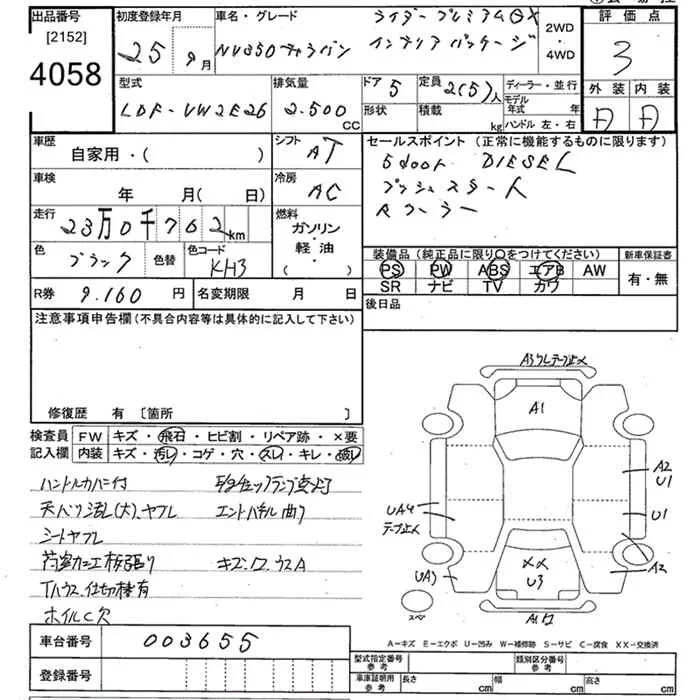 出品番号
[2152]
4058
初度登録年月
25 9月
車名・グレード
ライダープレミアムGX
NV350キャラバン インテリアパッケージ
2WD
・
4WD
評価点
3
外装 内装
A A
型式
LDF-VW2E26
排気量
2.500
CC
ドア 5
形状
定員 2(5)人
積載
kg
ディーラー・並行
モデル年式 年
ハンドル 左・右
車歴
自家用・( )
シフト
AT
車検
年 月( 日)
冷房
AC
走行
23万0千762km
燃料
ガソリン
軽油・
( )
色
ブラック
色替
色コード
KH3
R券 9.160 円
名変期限 月 日
セールスポイント(正常に機能するものに限ります)
5door DIESEL
プッシュスタート
Rクーラー
装備品(純正品に限り○をつけてください)
PS PW ABS エアB AW
SR ナビ TV カワ
新車保証書
有・無
後日品
注意事項申告欄(不具合内容等は具体的に記入して下さい)
修復歴 有 [箇所 ]
検査員記入欄
FW キズ・飛石・ヒビ割・リペア跡・×要
内装 キズ・汚レ・コゲ・穴・スレ・キレ・破レ
ハンドルカバー付
天ハリ汚レ(大)、ヤブレ エンドパネル曲り
シートヤブレ
荷室加工板張り
Tハウス、仕切棒有
ホイルC欠
A1
A2
U1
U1
A2
UA4
テープ止メ
UA3
XX
U3
スペア
A=キズ E=エクボ U=凹み W=補修跡 S=サビ C=腐食 XX=交換済
車台番号
003655
登録番号
型式指定番号
参考
類別区分番号
参考
車庫証明用
参考
長さ cm
幅 cm
高さ cm